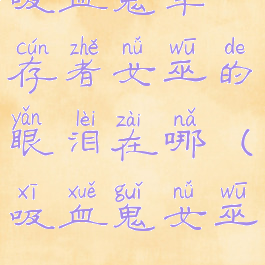 吸血鬼幸
cún zhě nǚ wū de
存者女巫的
yǎn lèi zài nǎ
眼泪在哪（
xī xuě guǐ nǚ wū
吸血鬼女巫